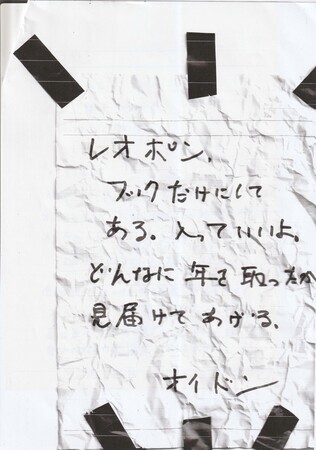 レオポン、
フックだけにして
ある。入っていいよ。
どんなに年を取ったか
見届けてあげる。
オイドン